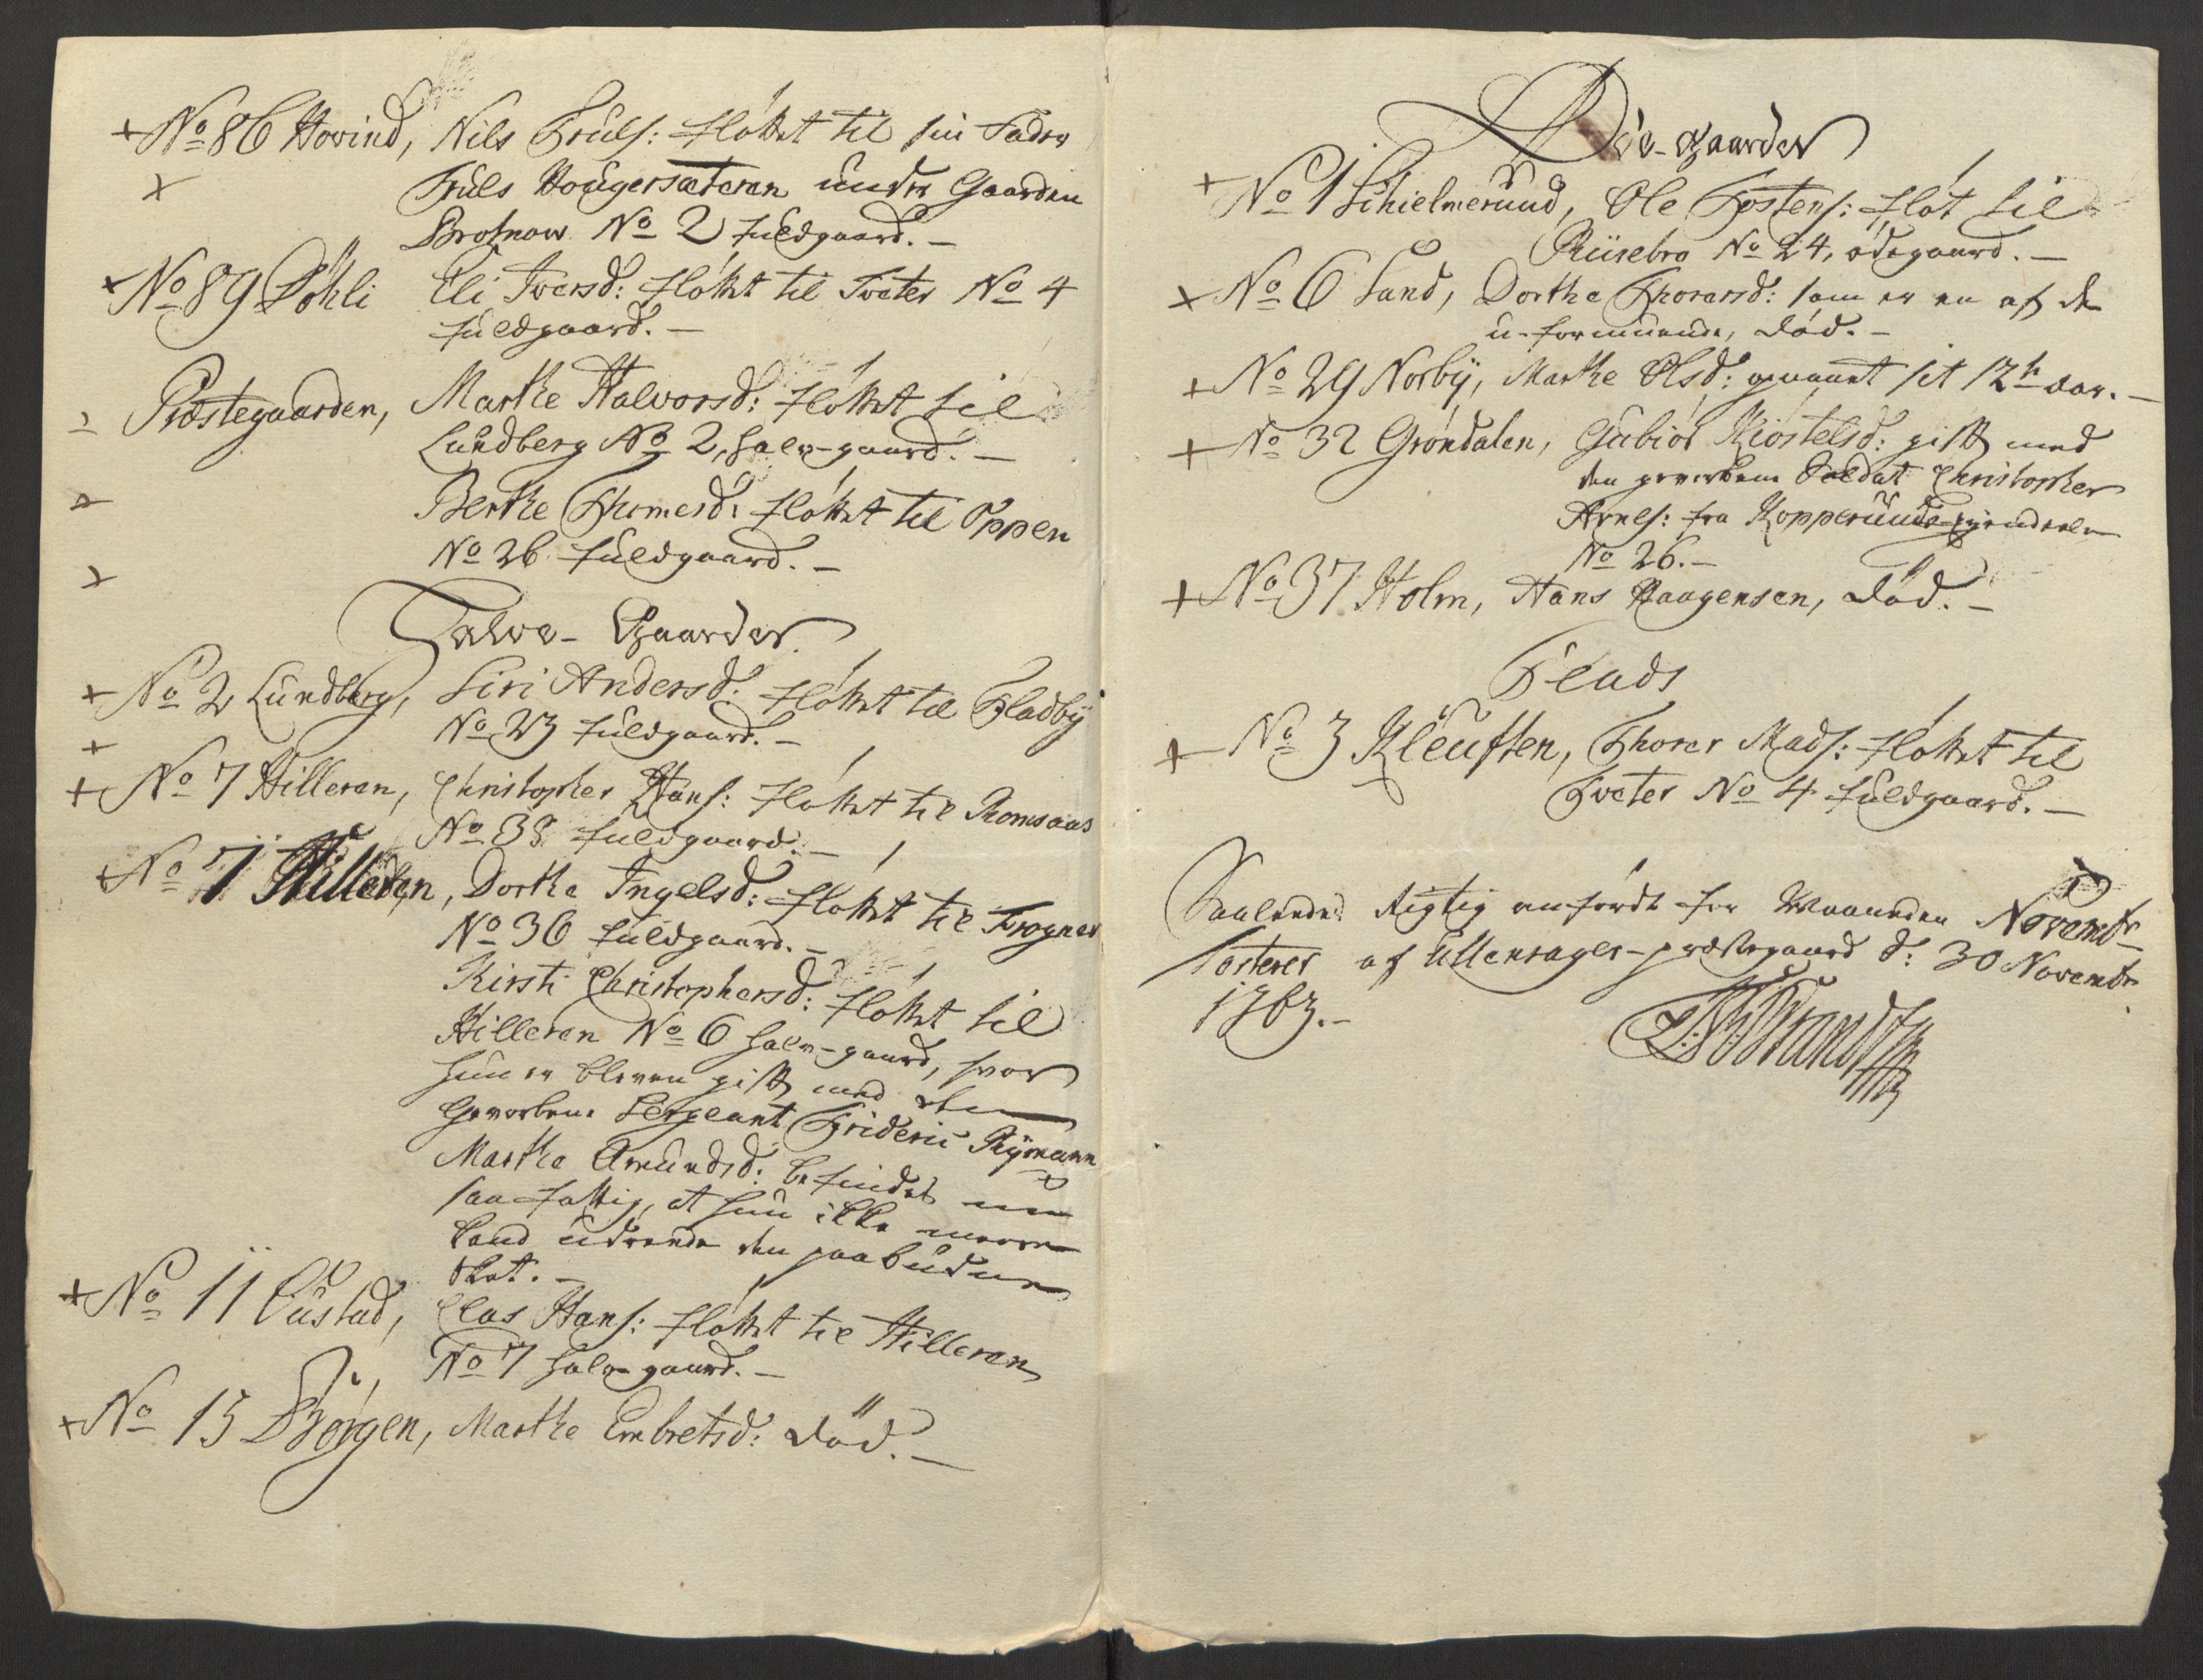 + No 86 Hovind, Nils Truls: fløttet til sin Fader
x Truls Hougersæteren under Gaarden
Brotnow No 2 fuldgaard. –
+ No 89 Løhli Eli Iversd: fløttet til Tveter No 4
fuldgaard. –
Præstegaarden, Marthe Halvorsd: fløttet til
Lundberg No 2, halv-gaard. –
Berthe Thomesd: fløttet til Oppen
No 26 fuldgaard. –
Halve-Gaarder.
+ No 2 Lundberg, Siri Andersd: fløttet til Fladby
+ No 23 fuldgaard. –
+ No 7 Hilleren, Christopher Hans: fløttet til Romsaas
No 38 fuldgaard. –
+ No 7 Hilleren, Dorthe Ingelsd: fløttet til Frogner
No 36 fuldgaard. –
Kirsti Christophersd: fløttet til
Hilleren No 6 halv-gaard, hvor
hun er bleven gift med den
Gevorbene Sergeant Frideric Rÿmann
Marthe Amundsd: befindes nu
saa fattig, at hun ikke meere
kand udreede den paabudne
Skat. –
+ No 11 Oustad, Clas Hans: fløttet til Hilleren
No 7 halv-gaard. –
+ No 15 Børgen, Marthe Embretsd: død. –
Øde-Gaarder
+ No 1 Schielmerund, Ole Tostens: fløt til
Riisebro No 24, ødegaard. –
x No 6 Sand, Dorthe Thorersd: som er en af de
u-formuende, død. –
+ No 29 Norbÿ, Marthe Olsd: gevannt sit 12te aar. –
+ No 32 Grøndalen, Gubiør Kiøstelsd: gift med
den gevorbene Soldat Christopher
Arnes: fra Kopperuds-eyendeele
No 26. –
+ No 37 Holm, Hans Haagensen, død. –
Plads
+ No 3 Kleuften, Thorer Mads: fløttet til
Tveter No 4 fuldgaard. –
Saaledes rigtig anførdt for Maaneden Novembr
Testerer af Ullensager-præstegaard d: 30 Novembr
1763. –